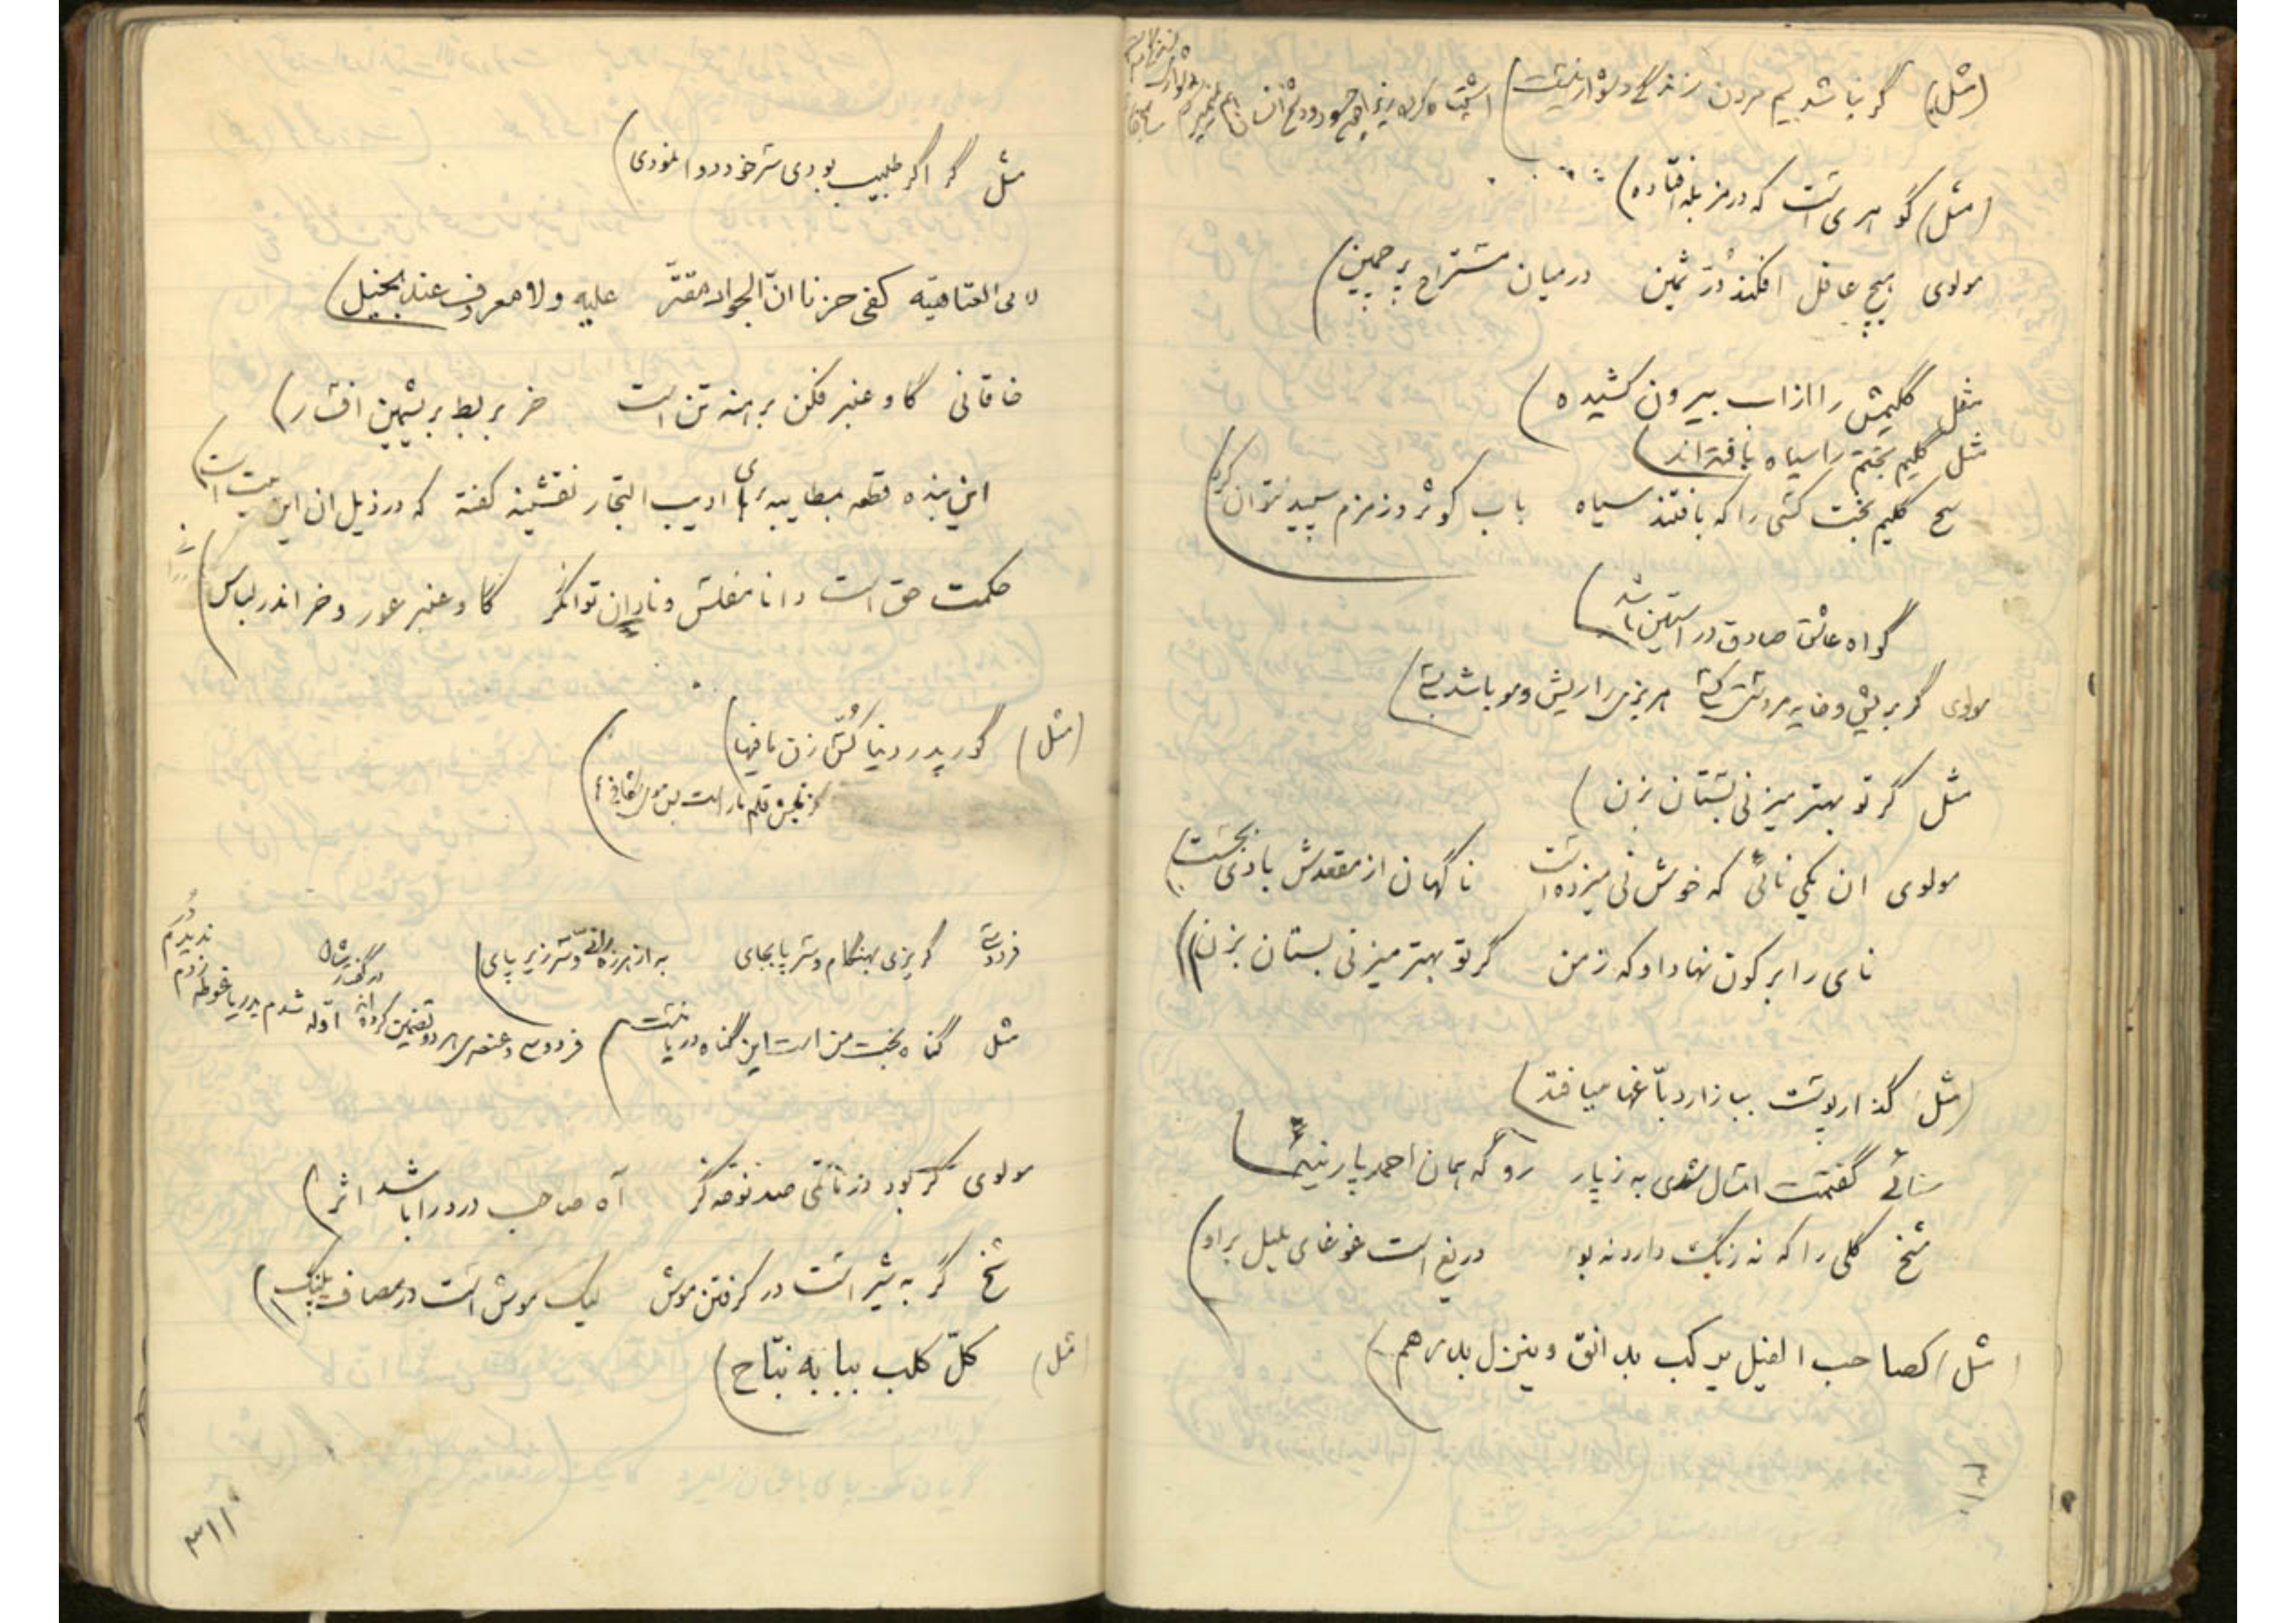 (مثل) گر نباشد بیم مردن زندگی دشوار نیست)
(مثل) گوهری است که در مزبله افتاده)
مولوی هیچ عاقل افکند در ثمین در میان مستراح پر چمین)
مثل گلیمش را از اب بیرون کشیده)
مثل گلیم بختم را سیاه بافته اند)
گلیم بخت کسی را که بافتند سیاه باب کوثر و زمزم سپید نتوان کرد)
گواه عاشق صادق در استین باشد)
مولوی گر بریش و خایه مردستی کسی هر بزی را ریش و مو باشد بسی)
مثل گر تو بهتر میزنی بستان بزن)
مولوی ان یکی نائی که خوش نی میزده است ناگهان از مقعدش بادی بجست)
نای را بر کون نهاد او که ز من گر تو بهتر میزنی بستان بزن))
(مثل) گذار پوست ببازار دباغها میافتد)
سنائی گفتمت امسال شدی به ز پار رو که همان احمد پارینه
شیخ گلی را که نه رنگ دارد نه بو دریغ است غوغای بلبل بر او)
(مثل) کصاحب الفیل یرکب بدانق وینزل بدرهم)
مثل گر اگر طبیب بودی سر خود دوا نمودی)
لابی العتاهیه کفی حزنا ان الجواد مقتر علیه ولا معروف عند بخیل)
خاقانی گاو عنبر فکن برهنه تن است خر بربط بریشمین افسار)
این بنده قطعه مطایبه برای ادیب التجار نقشینه گفته که در ذیل ان این بیت است)
حکمت حق است دانا مفلس و نادان توانگر گاو عنبر عور و خر اندر لباس)
(مثل) گور پدر دنیا کس زن مافیها)
فردوسی گریزی بهنگام و سر پابجای به از رزم و سر زیر پای)
مثل گناه بخت من است این گناه دریا نیست) فردوسی و عنصری هر دو تضمین کرده اند اوله شدم بدریا غوطه زدم ندیدم در
مولوی گر بود در ماتمی صد نوحه گر آه صاحب درد را باشد اثر)
شیخ گربه شیر است در گرفتن موش لیک موش است در مصاف پلنگ))
(مثل) کل کلب ببابه نباح)
۳۱۱